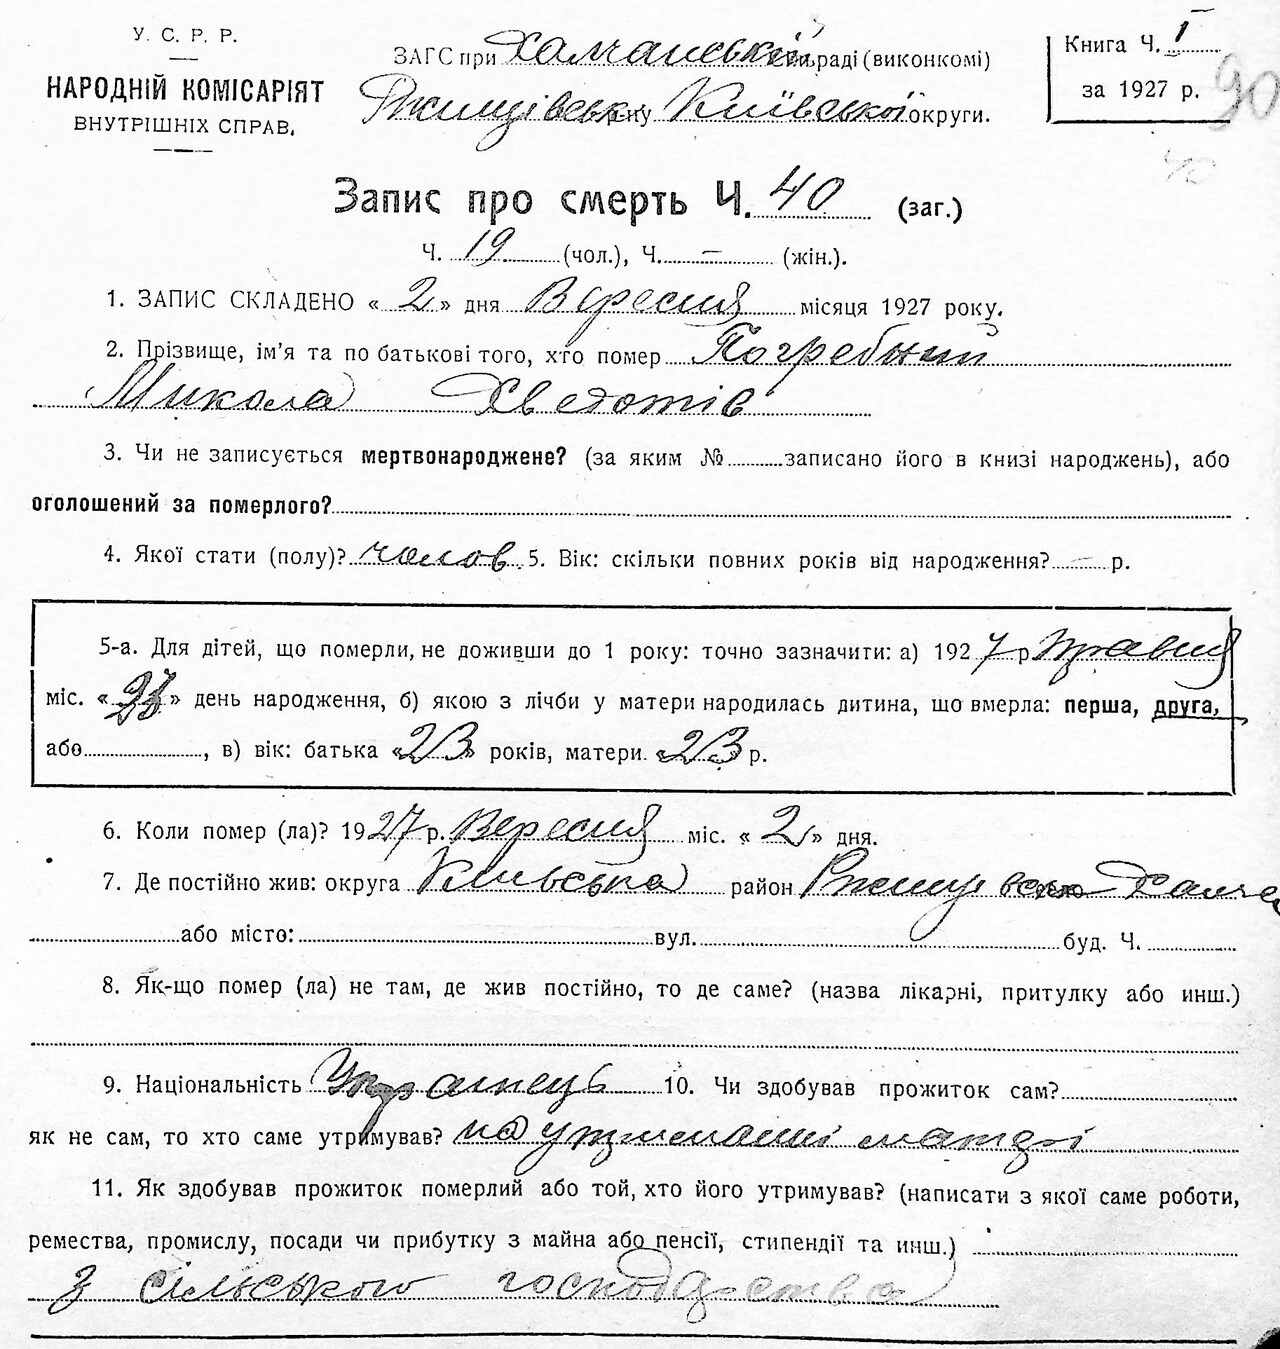 У. С. Р. Р.
НАРОДНІЙ КОМІСАРІЯТ
ВНУТРІШНІХ СПРАВ.
ЗАГС при Халчанській раді (виконкомі)
Ржищівськ р-ну Київської округи.
Книга Ч. I
за 1927 р.
90
40
Запис про смерть Ч. 40 (заг.)
Ч. 19 (чол.), Ч. – (жін.).
1. ЗАПИС СКЛАДЕНО « 2 » дня Вересня місяця 1927 року.
2. Прізвище, ім'я та по батькові того, хто помер Погребний
Микола Хведотів
3. Чи не записується мертвонароджене? (за яким № записано його в книзі народжень), або
оголошений за померлого?
4. Якої стати (полу)? чолов. 5. Вік: скільки повних років від народження? – р.
5-а. Для дітей, що померли, не доживши до 1 року: точно зазначити: а) 1927 р Травня
міс. « » день народження, б) якою з лічби у матери народилась дитина, що вмерла: перша, друга,
або , в) вік: батька «23» років, матери «23 р.
6. Коли помер (ла)? 1927 р. Вересня міс. « 2 » дня.
7. Де постійно жив: округа Київська район Ржищівськ
або місто: вул. буд. Ч.
8. Як-що помер (ла) не там, де жив постійно, то де саме? (назва лікарні, притулку або инш.)
9. Національність Українець 10. Чи здобував прожиток сам?
як не сам, то хто саме утримував? на утриманні матері
11. Як здобував прожиток померлий або той, хто його утримував? (написати з якої саме роботи,
ремества, промислу, посади чи прибутку з майна або пенсії, стипендії та инш.)
З сільського господарства